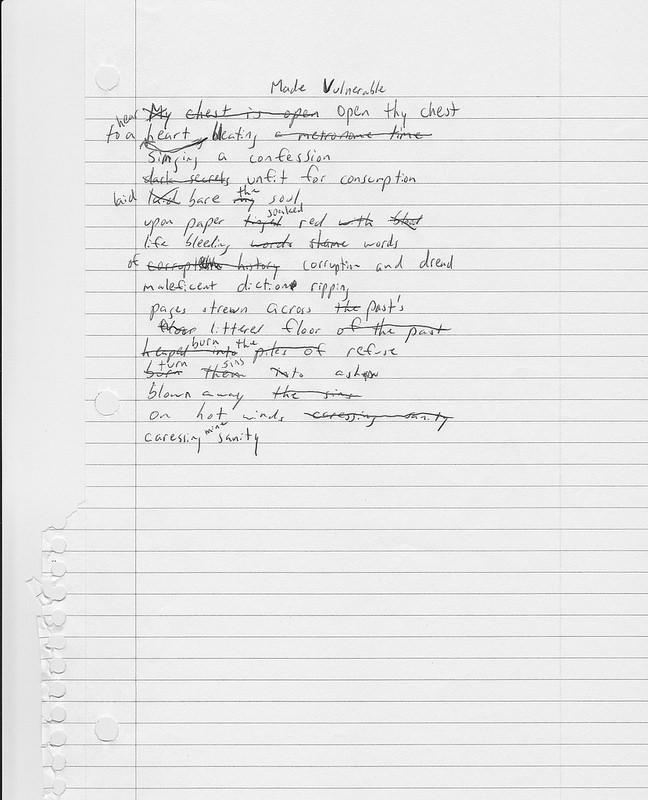 Made Vulnerable
hear My chest is open Open thy chest
to a heart, bleating a metronome time
Singing a confession
dark secrets unfit for consumption
laid laid bare my the soul
upon paper tinged soaked red with blood
life bleeding words shame words
of history corruption and dread
maleficent diction ripping
pages strewn across the past's
floor littered floor of the past
heaped into burn the piles of refuse
burn turn them sins into ashes
blown away the sins
on hot winds caressing sanity
caressing mine sanity